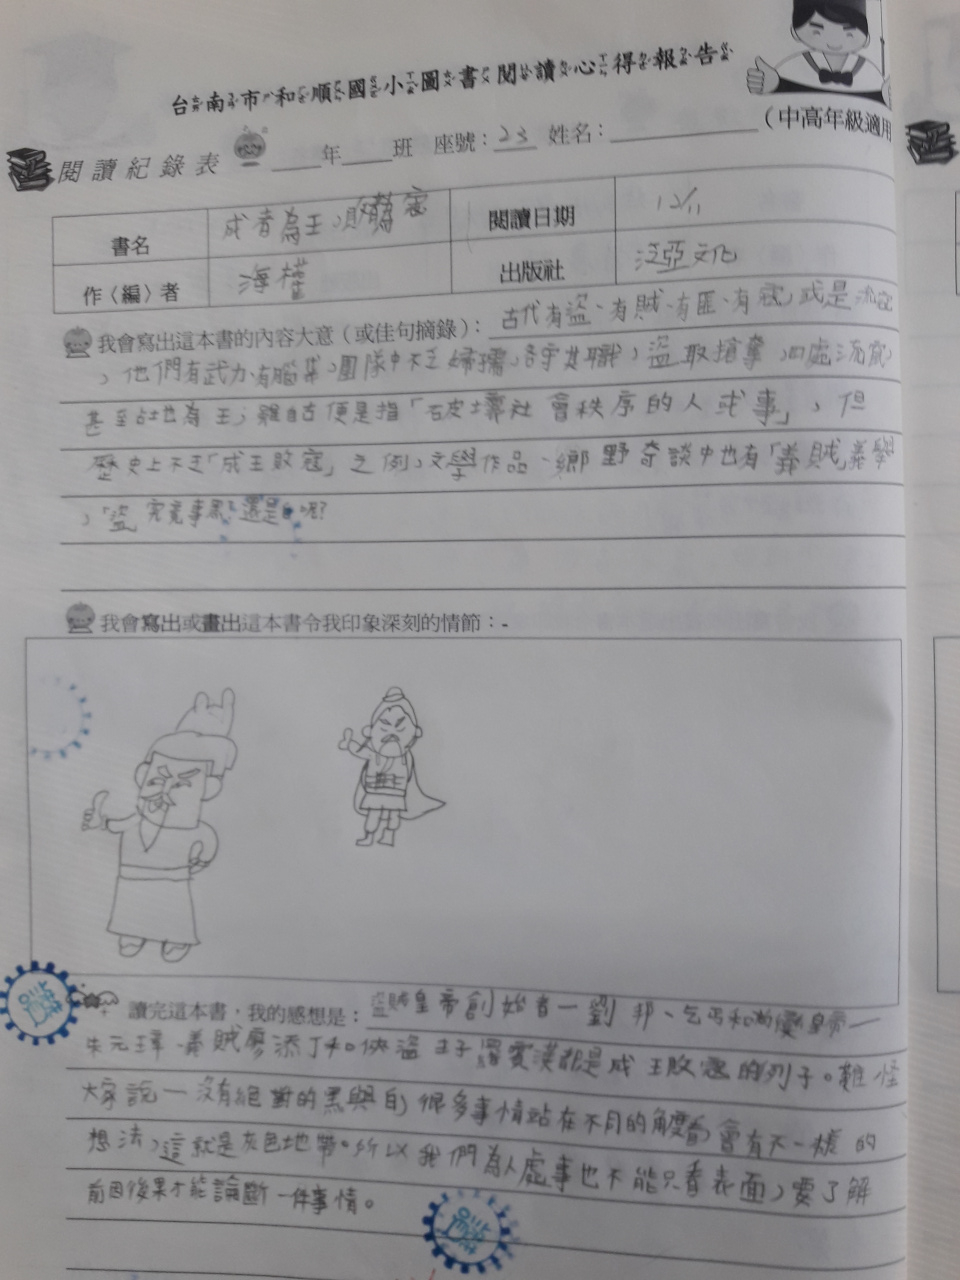 台南市和順國小圖書閱讀心得報告
閱讀紀錄表 ____年____班 座號：23 姓名：________（中高年級適用
書名 成者為王,敗為寇 閱讀日期 12/11
作〈編〉者 海權 出版社 泛亞文化
我會寫出這本書的內容大意（或佳句摘錄）： 古代有盜、有賊、有匪、有寇,或是流寇
,他們有武力、有腦筋,團隊中不乏婦孺,各守其職,盜取搶奪,四處流竄,
甚至占地為王;雖自古便是指「破壞社會秩序的人或事」,但
歷史上不乏「成王敗寇」之例,文學作品、鄉野奇談中也有「義賊」義舉
,「盜」究竟事黑?還是白呢?
我會寫出或畫出這本書令我印象深刻的情節：
讀完這本書，我的感想是： 盜賊皇帝創始者一劉邦、乞丐和尚變皇帝一
朱元璋、義賊廖添丁和俠盜王子羅賓漢都是成王敗寇的列子。難怪
大家說一沒有絕對的黑與白,很多事情站在不同的角度看,會有不一樣的
想法,這就是灰色地帶。所以我們為人處事也不能只看表面,要了解
前因後果才能論斷一件事情。